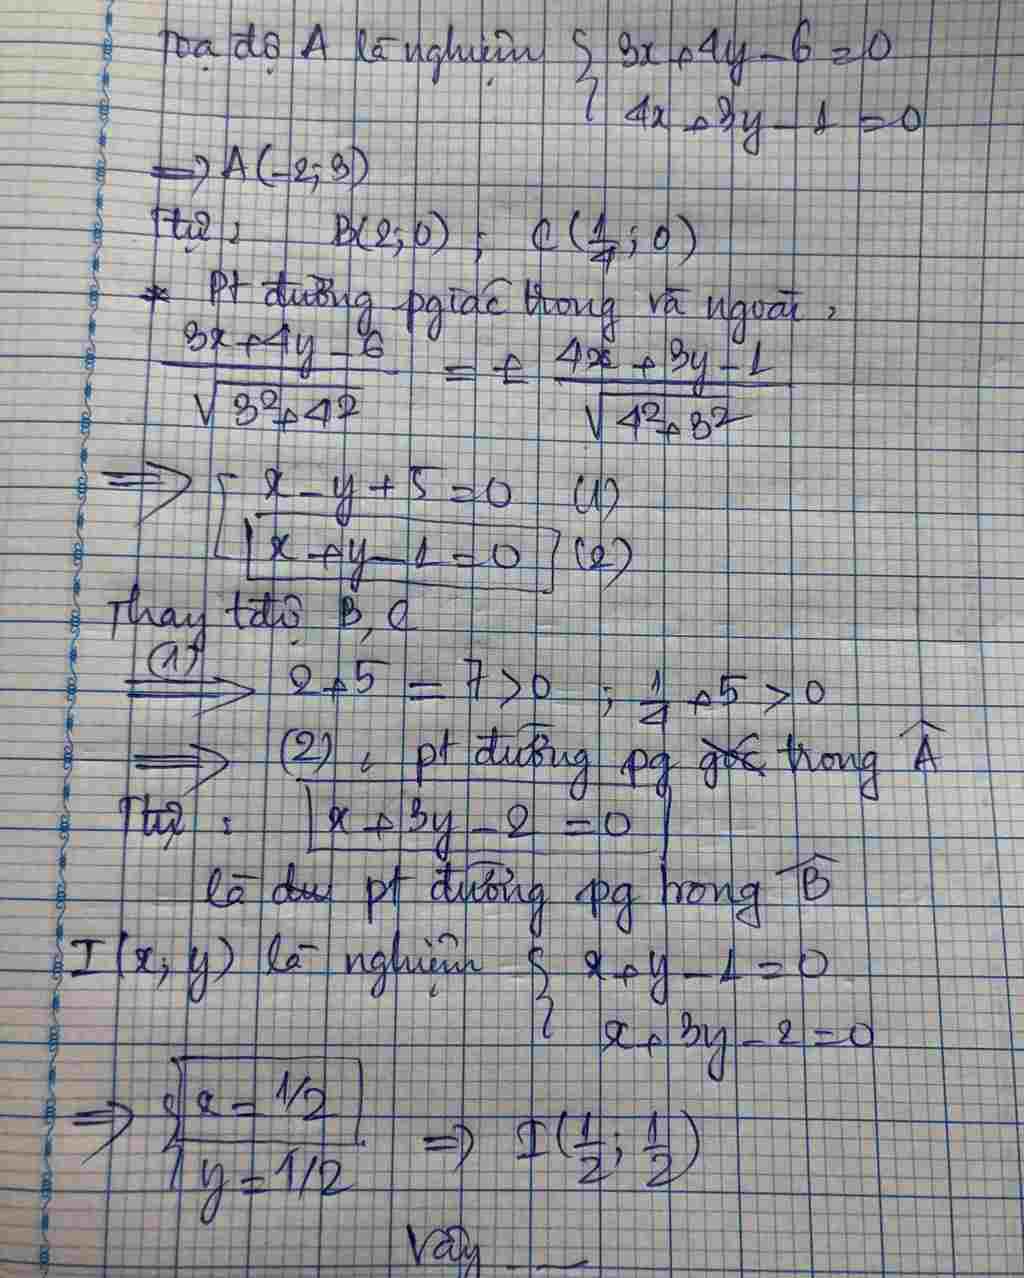 Toạ độ A là nghiệm { 3x+4y-6=0
4x+3y-1=0
=> A(-2;3)
Ttự: B(2;0); C(1/4;0)
* Pt đường pgiác trong và ngoài:
(3x+4y-6)/√(3²+4²) = ± (4x+3y-1)/√(4²+3²)
=> [ x-y+5=0 (1)
x+y-1=0 (2)
Thay tđộ B, C
(1) => 2+5=7>0; 1/4+5>0
=> (2): pt đường pg góc trong Â
Ttự: x+3y-2=0
là pt đường pg trong B̂
I(x;y) là nghiệm { x+y-1=0
x+3y-2=0
=> { x=1/2
y=1/2 => I(1/2; 1/2)
Vậy ___